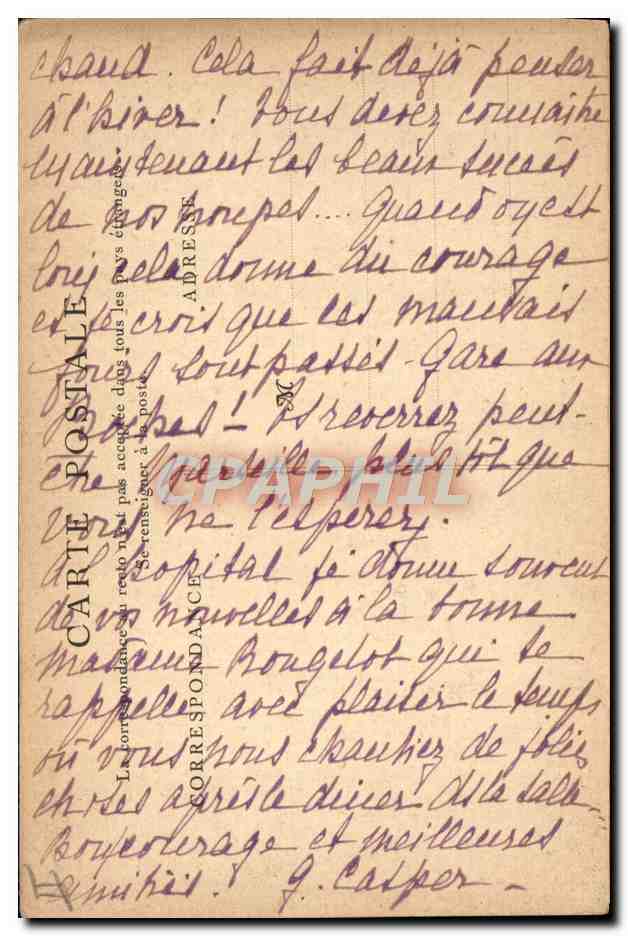 chaud. Cela fait déjà penser
à l'hiver! Vous devez connaître
maintenant les beaux succès
de nos troupes.... Quand on est
loin cela donne du courage
et je crois que les mauvais
jours sont passés - Gare aux
Boches! Vs reverrez peut-
être plus tôt que
vous ne l'espérez.
A l'hôpital je donne souvent
de vos nouvelles à la bonne
madame Rougelot qui se
rappelle avec plaisir le temps
où vous nous chantiez de jolies
choses après le diner ds la salle.
Bon courage et meilleures
amitiés. G. Casper -
CARTE POSTALE
La correspondance au recto n'est pas acceptée dans tous les pays étrangers.
Se renseigner à la poste.
CORRESPONDANCE
ADRESSE
M
CPAPHIL